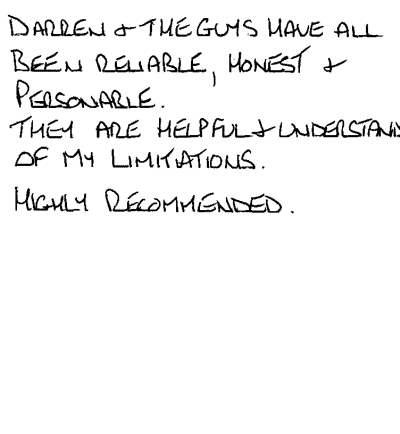 DARREN & THE GUYS HAVE ALL
BEEN RELIABLE, HONEST &
PERSONABLE.
THEY ARE HELPFUL & UNDERSTAND
OF MY LIMITATIONS.
HIGHLY RECOMMENDED.